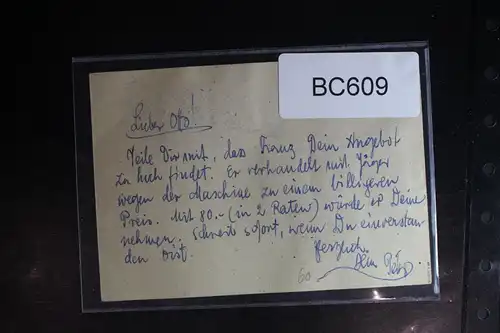 BC609
Lieber Otto!
Teile Dir mit, dass Franz Dein Angebot
zu hoch findet. Er verhandelt mit Jäger
wegen der Maschine zu einem billigeren
Preis. Mit 80.- (in 2 Raten) würde er Deine
nehmen. Schreib sofort, wenn Du einverstan
den bist. Herzlich
Dein
60